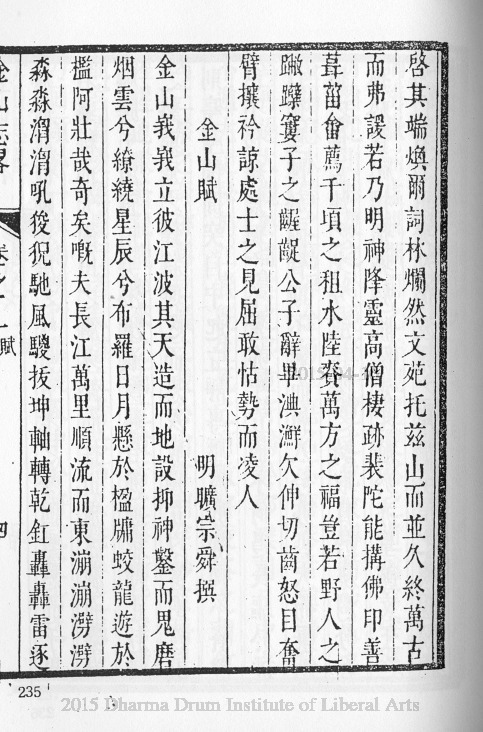 啓其端煥爾詞林爛然文苑托茲山而並久終萬古
而弗諼若乃明神降靈高僧棲跡裴陀能搆佛印善
葺菑畬薦千項之租水陸賚萬方之福豈若野人之
蹴躒窶子之齷齪公子辭畢淟㴓欠伸切齒怒目奮
臂攘衿諒處士之見屈敢怙勢而凌人
金山賦
明曠宗舜撰
金山峩峩立彼江波其天造而地設抑神鑿而鬼磨
烟雲兮繚繞星辰兮布羅日月懸於楹牖蛟龍遊於
檻阿壯哉奇矣嘅夫長江萬里順流而東漰漰澇澇
淼淼㵒㵒吼狻猊馳風騣扳坤軸轉乾釭轟轟雷逐
金山志畧
卷之二
賦
四
235
2015 Dharma Drum Institute of Liberal Arts